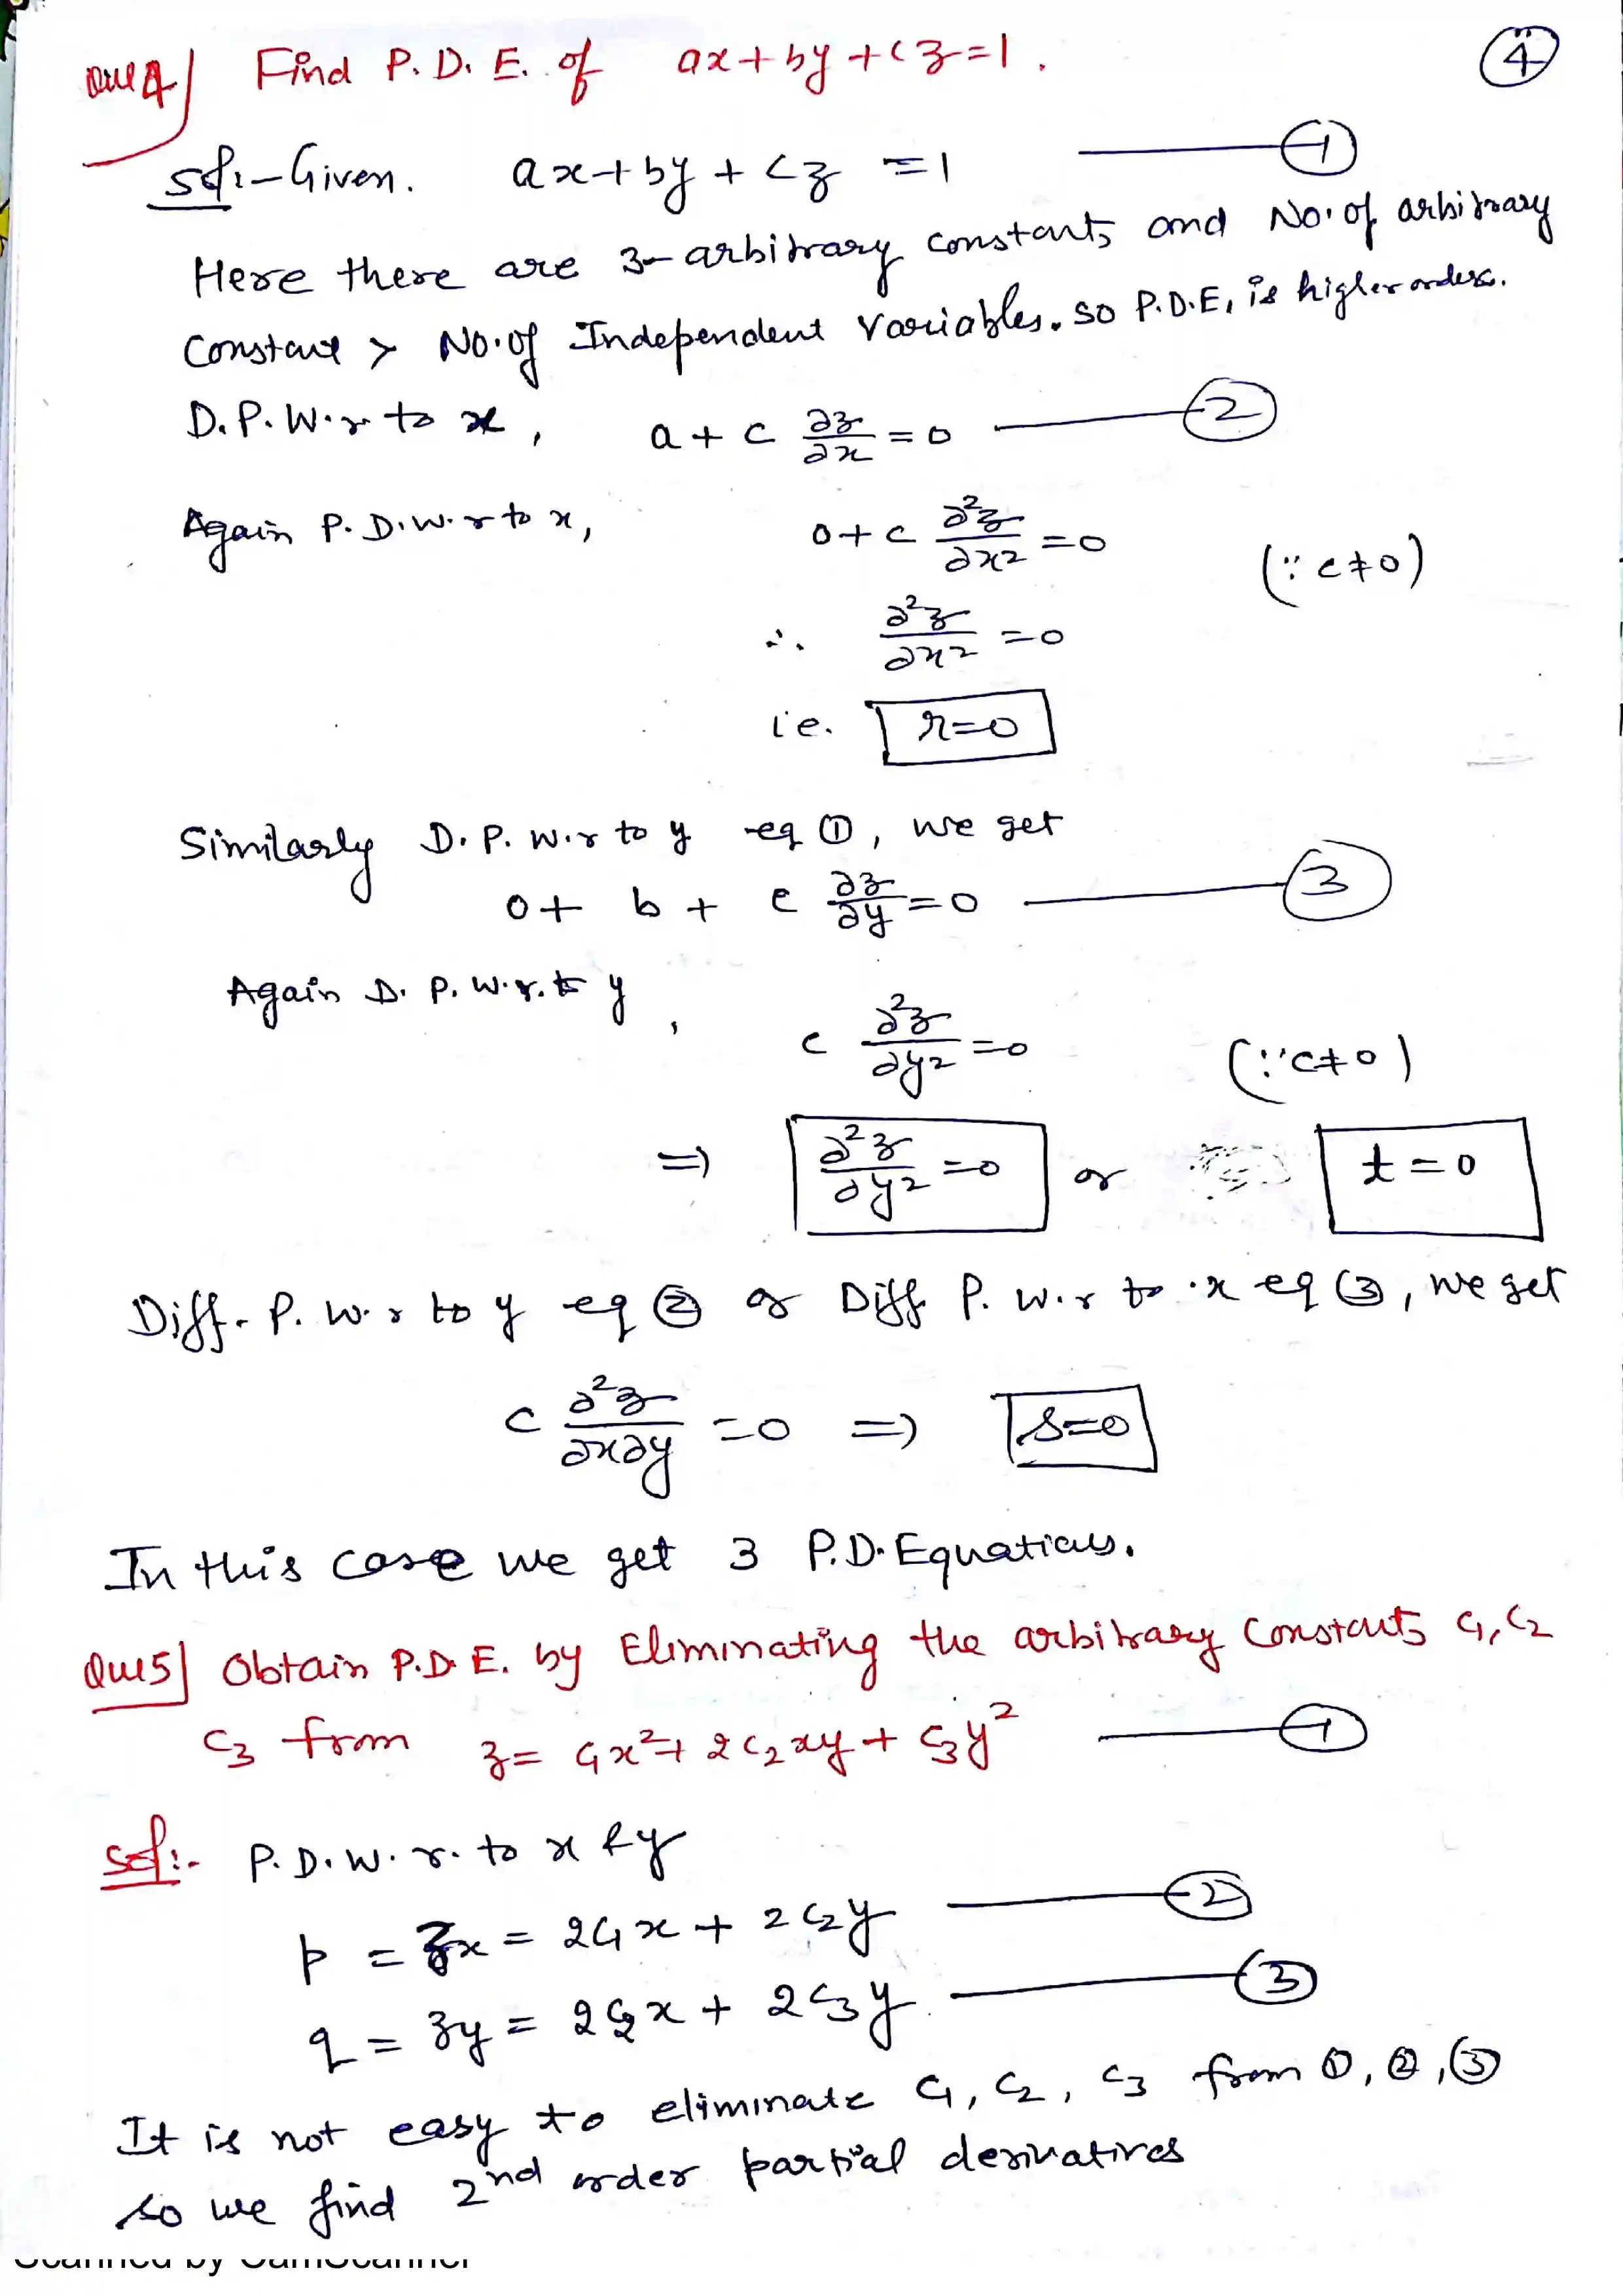 Que 4) Find P.D.E. of ax+by+cz=1. (4)
Sol:- Given. ax+by+cz =1 —— (1)
Here there are 3-arbitrary constants and No. of arbitrary
Constant > No. of Independent variables. so P.D.E. is higher order.
D.P.W.r to x, a + c ∂z/∂x = 0 —— (2)
Again P.D.W.r to x, 0 + c ∂²z/∂x² = 0 (∵ c≠0)
∴ ∂²z/∂x² = 0
i.e. r=0
Similarly D.P. w.r to y eq ①, we get
0 + b + c ∂z/∂y = 0 —— (3)
Again D. P. W.r. to y, c ∂²z/∂y² = 0 (∵ c≠0)
⇒ ∂²z/∂y² = 0 or t = 0
Diff. P. w.r to y eq ② or Diff P. w.r to x eq ③, we get
c ∂²z/∂x∂y = 0 ⇒ s=0
In this case we get 3 P.D. Equations.
Que 5) Obtain P.D.E. by Eliminating the arbitrary Constants c₁, c₂
c₃ from z = c₁x² + 2c₂xy + c₃y² —— (1)
Sol:- P.D.W.r. to x & y
p = zx = 2c₁x + 2c₂y —— (2)
q = zy = 2c₂x + 2c₃y —— (3)
It is not easy to eliminate c₁, c₂, c₃ from ①, ②, ③
so we find 2nd order partial derivatives
Scanned by CamScanner